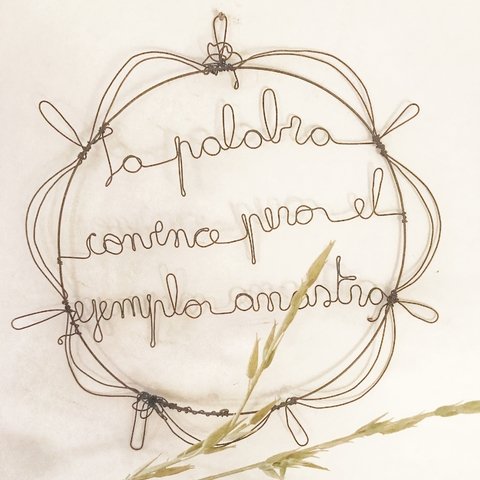 La palabra
convence pero el
ejemplo arrastra